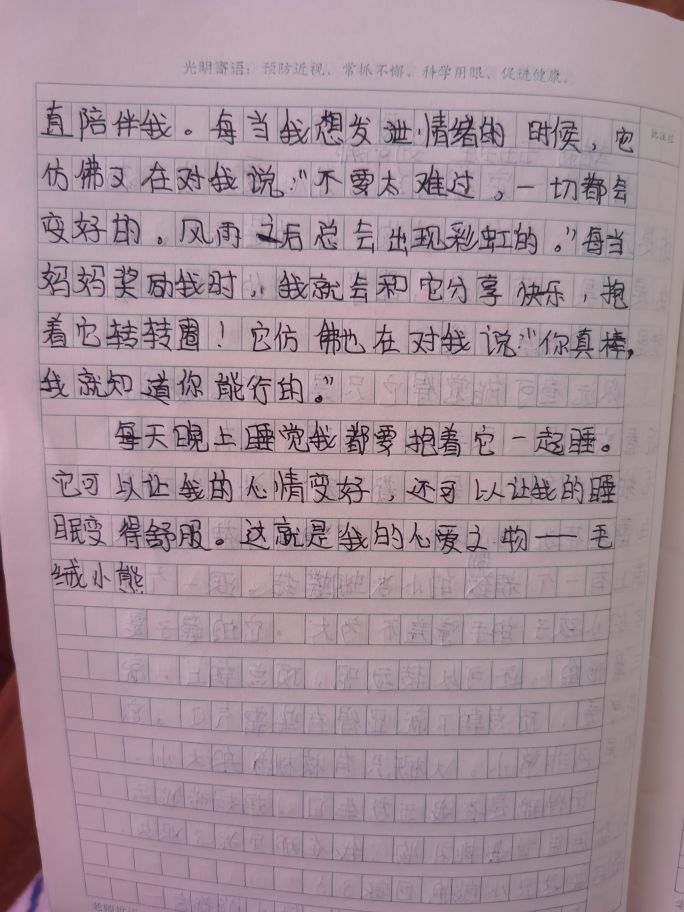 光明寄语：预防近视、常抓不懈、科学用眼、促进健康。
直陪伴我。每当我想发泄情绪的时候，它
仿佛又在对我说：“不要太难过，一切都会
变好的。风雨之后总会出现彩虹的。”每当
妈妈奖励我时，我就会和它分享快乐，抱
着它转转圈！它仿佛也在对我说：“你真棒，
我就知道你能行的。”
每天晚上睡觉我都要抱着它一起睡。
它可以让我的心情变好，还可以让我的睡
眠变得舒服。这就是我的心爱之物——毛
绒小熊